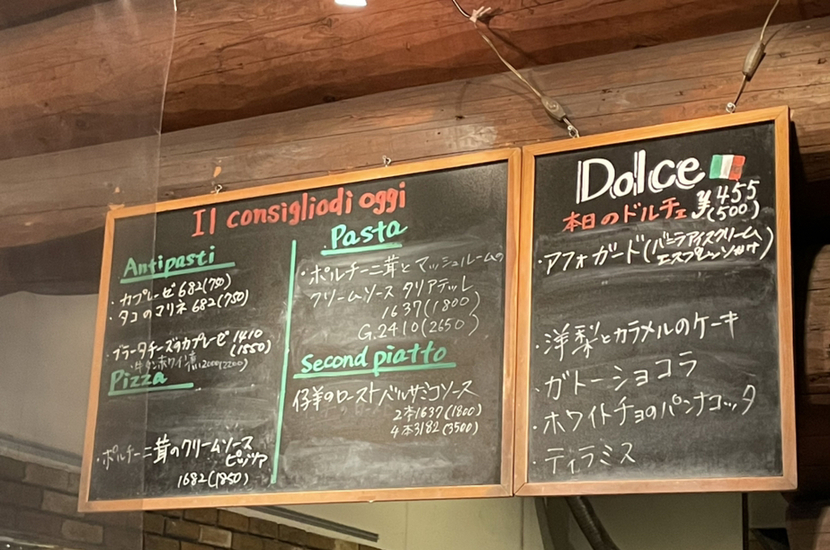 Il consigliodi oggi
Antipasti
・カプレーゼ 682(750)
・タコのマリネ 682(750)
・ブラータチーズのカプレーゼ 1410
(1550)
Pizza
・ポルチーニ茸のクリームソース
ピッツァ
1682(1850)
Pasta
・ポルチーニ茸とマッシュルームの
クリームソース タリアテッレ
1637(1800)
G.2410(2650)
Second piatto
仔羊のローストバルサミコソース
2本1637(1800)
4本3182(3500)
Dolce
本日のドルチェ ¥455
(500)
・アフォガード(バニラアイスクリーム
エスプレッソがけ)
・洋梨とカラメルのケーキ
・ガトーショコラ
・ホワイトチョコのパンナコッタ
・ティラミス